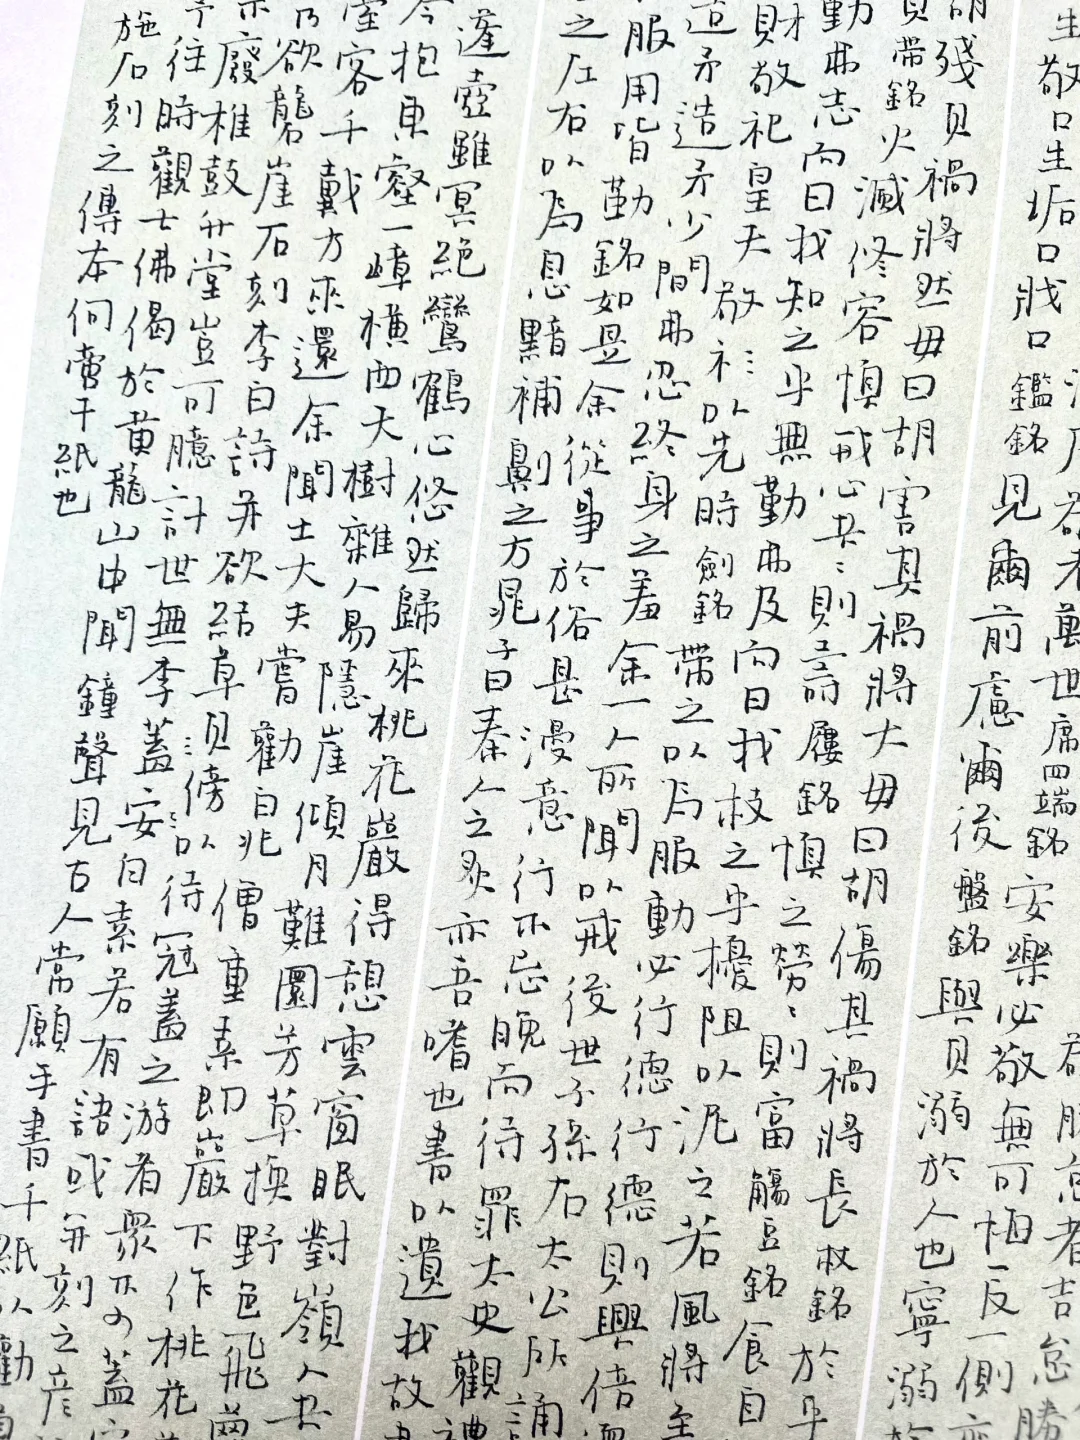 生敬口生㖃口戕口鑑銘見爾前慮爾後盤銘與其溺於人也寧溺於
萬世席四端銘安樂必敬無可悔一反一側亦
勝怠者吉怠勝
胡殘其禍將然毋曰胡害其禍將大毋曰胡傷其禍將長杖銘於乎
帶銘火滅修容慎戒必共〻則壽屨銘慎之勞〻則富觴豆銘食自
勤弗志而曰我知之乎無勤弗及而曰我杖之乎擾阻以泥之若風將至
財敬祀皇天敬〻以先時劍銘帶之以為服動必行德行德則興倍
造矛造矛少間弗忍終身之羞余一人所聞以戒後世子孫右太公所誦
服用皆勒銘如是余從事於俗甚漫意行不忘晚而得罪太史觀禮
之左右以為息黥補劓之方晁子曰秦人之炙亦吾嗜也書以遺我故
蓬壺雖冥絕鸞鶴心悠然歸來桃花巖得憩雲窗眠對嶺人共
今抱東壑一嶂橫西天樹雜人易隱崖傾月難圓芳草換野色飛蘿
室客千載方來還余聞士大夫嘗勸白兆僧重素即巖下作桃花
乃欲礱崖石刻李白詩并欲結草其傍以待冠蓋之游者眾不可蓋
廢椎鼓升堂豈可臆計世無李蓋安白素若有語或并刻之彦
往時觀士佛偈於黃龍山中聞鐘聲見古人常願手書千紙以勸
施石刻之傳本何啻千紙也